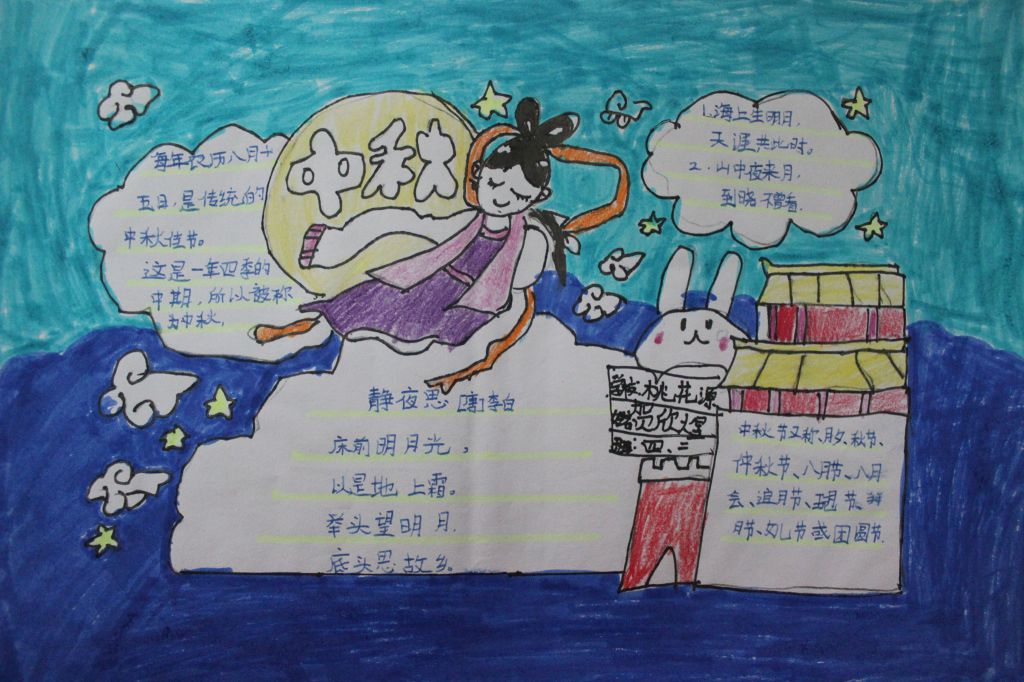 中秋
每年农历八月十
五日,是传统的
中秋佳节。
这是一年四季的
中期,所以被称
为中秋,
1.海上生明月,
天涯共此时。
2.山中夜来月,
到晓不曾看.
静夜思 [唐]李白
床前明月光,
以是地上霜。
举头望明月.
底头思故乡。
桃花源
欣煜
四、二
中秋节又称、月夕、秋节、
仲秋节、八月节、八月
会、追月节、玩月节、拜
月节、女儿节或团圆节.